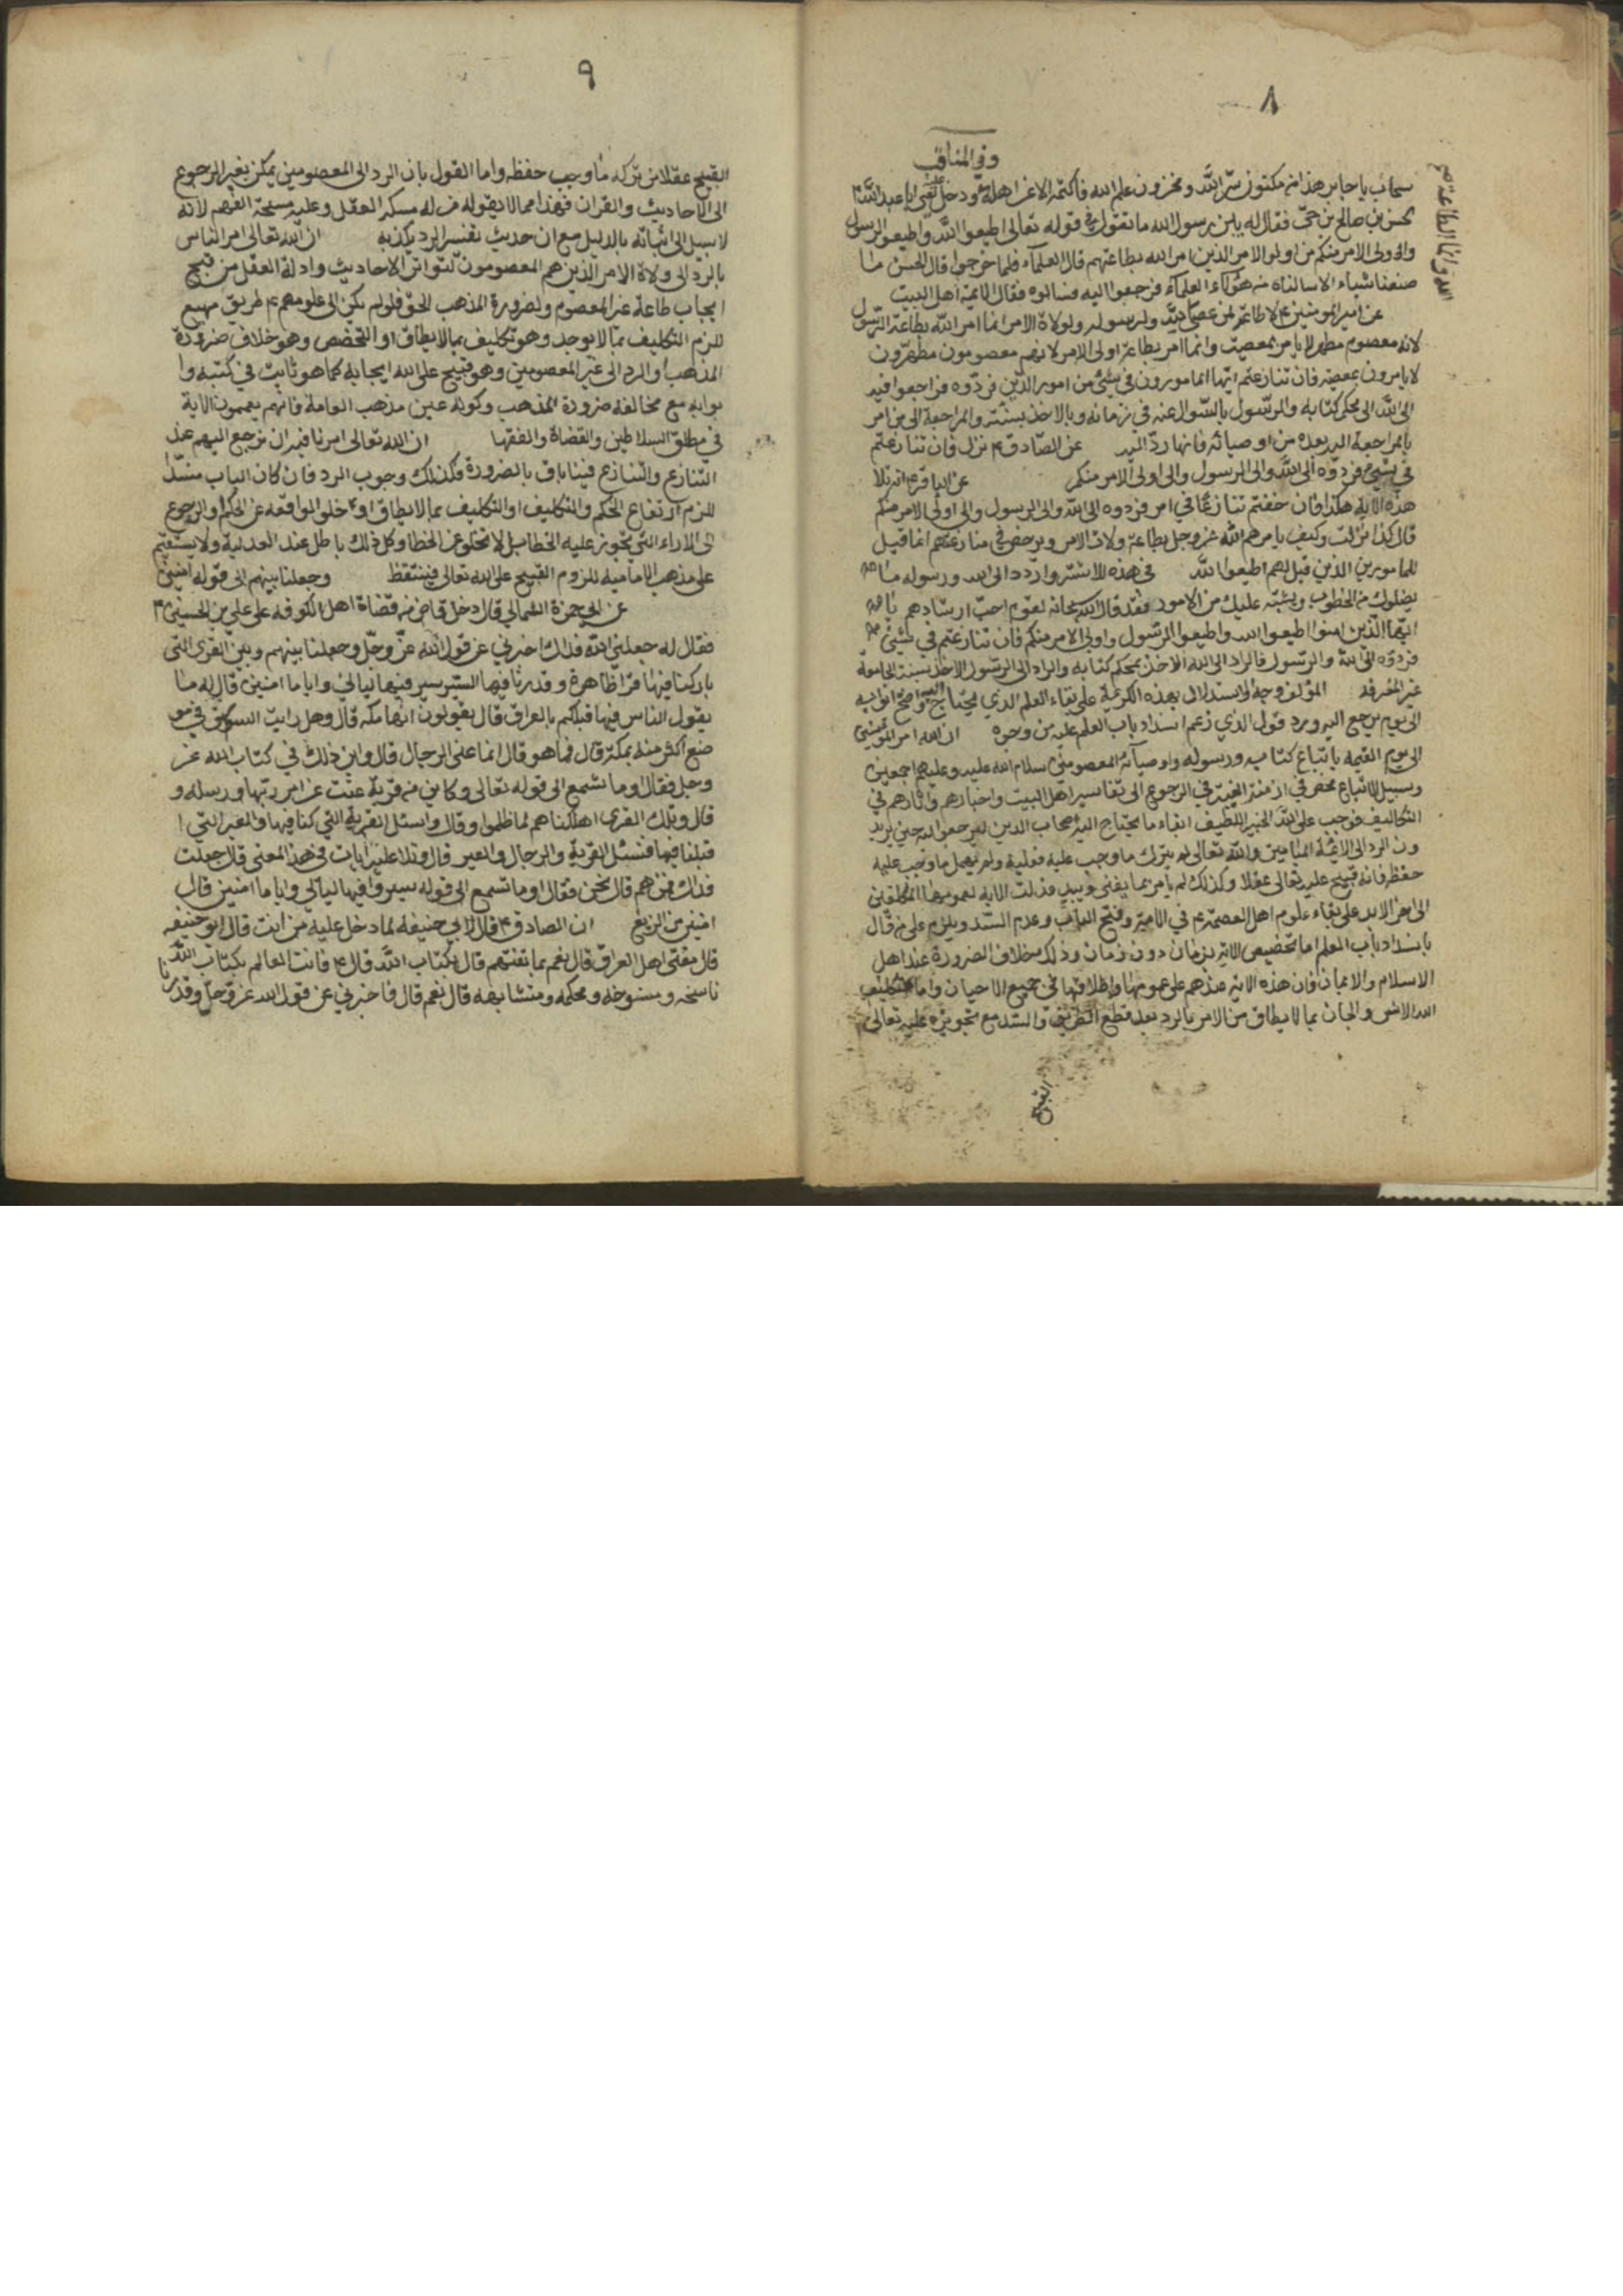 ٨
وفي المناقب
سحاب يا جابر هذا من مكنون سر الله ومخزون علم الله فاكتمه الا عن اهله ودخل على ابا عبد الله
الحسن بن صالح بن حي فقال له يابن رسول الله ما تقول في قوله تعالى اطيعوا الله واطيعوا الرسول
واولى الامر منكم من اولو الامر الذين امر الله بطاعتهم قال العلماء فلما خرجوا قال الحسن ما
صنعنا شياء الا سالناه من هؤلاء العلماء فرجعوا اليه فسالوه فقال الائمة اهل البيت
عن امير المؤمنين ع لا طاعة لمن عصى الله ولرسوله ولولاة الامر انما امر الله بطاعة الرسول
لانه معصوم مطهر لا يامر بمعصية وانما امر بطاعة اولى الامر لانهم معصومون مطهرون
لا يامرون بمعصية فان تنازعتم ايها المامورون في شئ من امور الدين فردوه فراجعوا فيه
الى الله الى محكم كتابه والرسول بالسوال عنه في زمانه وبالاخذ بسنته والمراجعة الى من امر
بالمراجعة اليه بعده من اوصيائه فانها رد اليه عن الصادق ع نزل فان تنازعتم
في شئ فردوه الى الله والى الرسول والى اولى الامر منكم عن الباقر ع انه تلا
هذه الاية هكذا فان خفتم تنازعا في امر فردوه الى الله والى الرسول والى اولى الامر منكم
قال كذا نزلت وكيف يامرهم الله عز وجل بطاعة ولاة الامر ويرخص في منازعتهم انما قيل
للمامورين الذين قيل لهم اطيعوا الله في هذه الاشتر واردد الى الله ورسوله ما
يضلوك من الخطوب ويشتبه عليك من الامور فقد قال الله سبحانه لقوم احب ارشادهم يا
ايها الذين امنوا اطيعوا الله واطيعوا الرسول واولى الامر منكم فان تنازعتم في شئ
فردوه الى الله والرسول فالراد الى الله الاخذ بمحكم كتابه والراد الى الرسول الاخذ بسنته الجامعة
غير المفرقة المؤلف وجه الاستدلال بهذه الكريمة على بقاء العلم الذي يحتاج اليه
الى يوم يرجع اليه ويرد قول الذي زعم انسداد باب العلم عليه من وجوه ان الله امر المؤمنين
الى يوم القيمه باتباع كتابه ورسوله واوصيائه المعصومين سلام الله عليه وعليهم اجمعين
وسبيل الاتباع منحصر في ازمنة الغيبة في الرجوع الى تفاسير اهل البيت واخبارهم واثارهم في
التكاليف فوجب على الله الخبير اللطيف ابقاء ما يحتاج اليه اصحاب الدين ليرجعوا اليه حين يريد
ون الرد الى الائمة الميامين والله تعالى لم يترك ما وجب عليه فعليه ولم يهمل ما وجب عليه
حفظه فانه قبيح عليه تعالى عقلا وكذلك لم يامر بما يفنى ويبيد فدلت الاية لعمومها المكلفين
الى اخر الابد على بقاء علوم اهل العصمة ع في الامة وفتح الباب وعدم السد ويلزم على من قال
بانسداد باب العلم اما تخصيص الاية بزمان دون زمان وذلك خلاف الضرورة عند اهل
الاسلام والايمان فان هذه الاية عندهم على عمومها واطلاقها في جميع الاحيان واما تكليف
الله الانس والجان بما لا يطاق من الامر بالرد بعد قطع الطريق والسد مع تجويزه عليه تعالى
القبيح
٩
القبيح عقلا من تركه ما وجب حفظه واما القول بان الرد الى المعصومين يمكن بغير الرجوع
الى الاحاديث والقران فهذا مما لا يقوله من له مسكة العقل وعليه مسحة الفهم لانه
لا سبيل الى اثباته بالدليل مع ان حديث تفسير الرد يكذبه ان الله تعالى امر الناس
بالرد الى ولاة الامر الذين هم المعصومون لتواتر الاحاديث وادلة العقل من قبح
ايجاب طاعة غير المعصوم ولضرورة المذهب الحق فلو لم يكن الى علومهم ع طريق مهيع
للزم التكليف بما لا يوجد وهو تكليف بما لا يطاق او التخصص وهو خلاف ضرورة
المذهب او الرد الى غير المعصومين وهو قبيح على الله ايجابه كما هو ثابت في كتبه وا
بوابه مع مخالفة ضرورة المذهب وكونه عين مذهب العامة فانهم يعممون الاية
في مطلق السلاطين والقضاة والفقها ان الله تعالى امرنا فيه ان نرجع اليهم عند
التنازع والتنازع فينا باق بالضرورة فكذلك وجوب الرد فان كان الباب منسدا
للزم ارتفاع الحكم والتكليف او التكليف بما لا يطاق او خلو الواقعه عن الحكم او الرجوع
الى الاراء التي يجوز عليه الخطا بل لا تخلو عن الخطا وكل ذلك باطل عند العدلية ولا يستقيم
على مذهب الامامية للزوم القبيح على الله تعالى فتيقظ وجعلنا بينهم الى قوله امنين
عن ابي حمزة الثمالي قال دخل قاض من قضاة اهل الكوفه على علي بن الحسين ع
فقال له جعلني الله فداك اخبرني عن قول الله عز وجل وجعلنا بينهم وبين القرى التي
باركنا فيها قرا ظاهرة وقدرنا فيها السير سيروا فيها ليالي واياما امنين قال له ما
يقول الناس فيها قبلكم بالعراق قال يقولون انها مكه قال وهل رايت السرق في مو
ضع اكثر منه بمكة قال فما هو قال انما عنى الرجال قال واين ذلك في كتاب الله عز
وجل فقال اوما تسمع الى قوله تعالى وكاين من قرية عتت عن امر ربها ورسله و
قال وتلك القرى اهلكناهم لما ظلموا وقال واسئل القرية التي كنا فيها والعير التي ا
قبلنا فيها فنسئل القرية والرجال والعير قال وتلا عليه ايات في هذا المعنى قال جعلت
فداك فمن هم قال نحن فقال اوما تسمع الى قوله سيروا فيها ليالي واياما امنين قال
امنين من الزيغ ان الصادق ع قال لابي حنيفه لما دخل عليه من انت قال ابو حنيفه
قال مفتى اهل العراق قال نعم بما تفتيهم قال بكتاب الله قال ع فانت العالم بكتاب الله
ناسخه ومنسوخه ومحكمه ومتشابهه قال نعم قال فاخبرني عن قول الله عز وجل وقدرنا